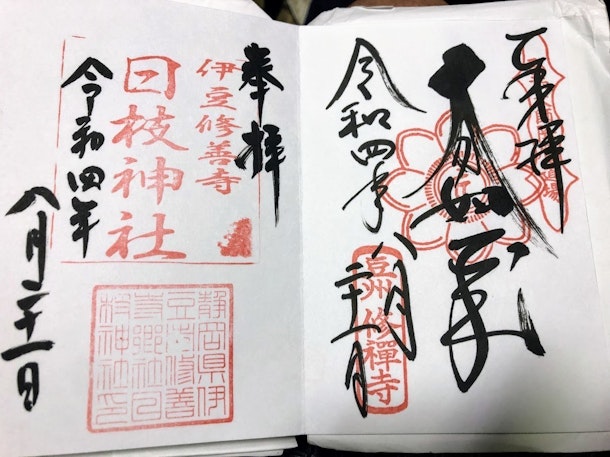 奉拝
大日如来
令和四年
八月
二十一日
豆州 修禪寺
奉拝
伊豆修善寺
日枝神社
令和四年
八月二十一日
静岡県伊
豆市修善
寺郷社日
枝神社印